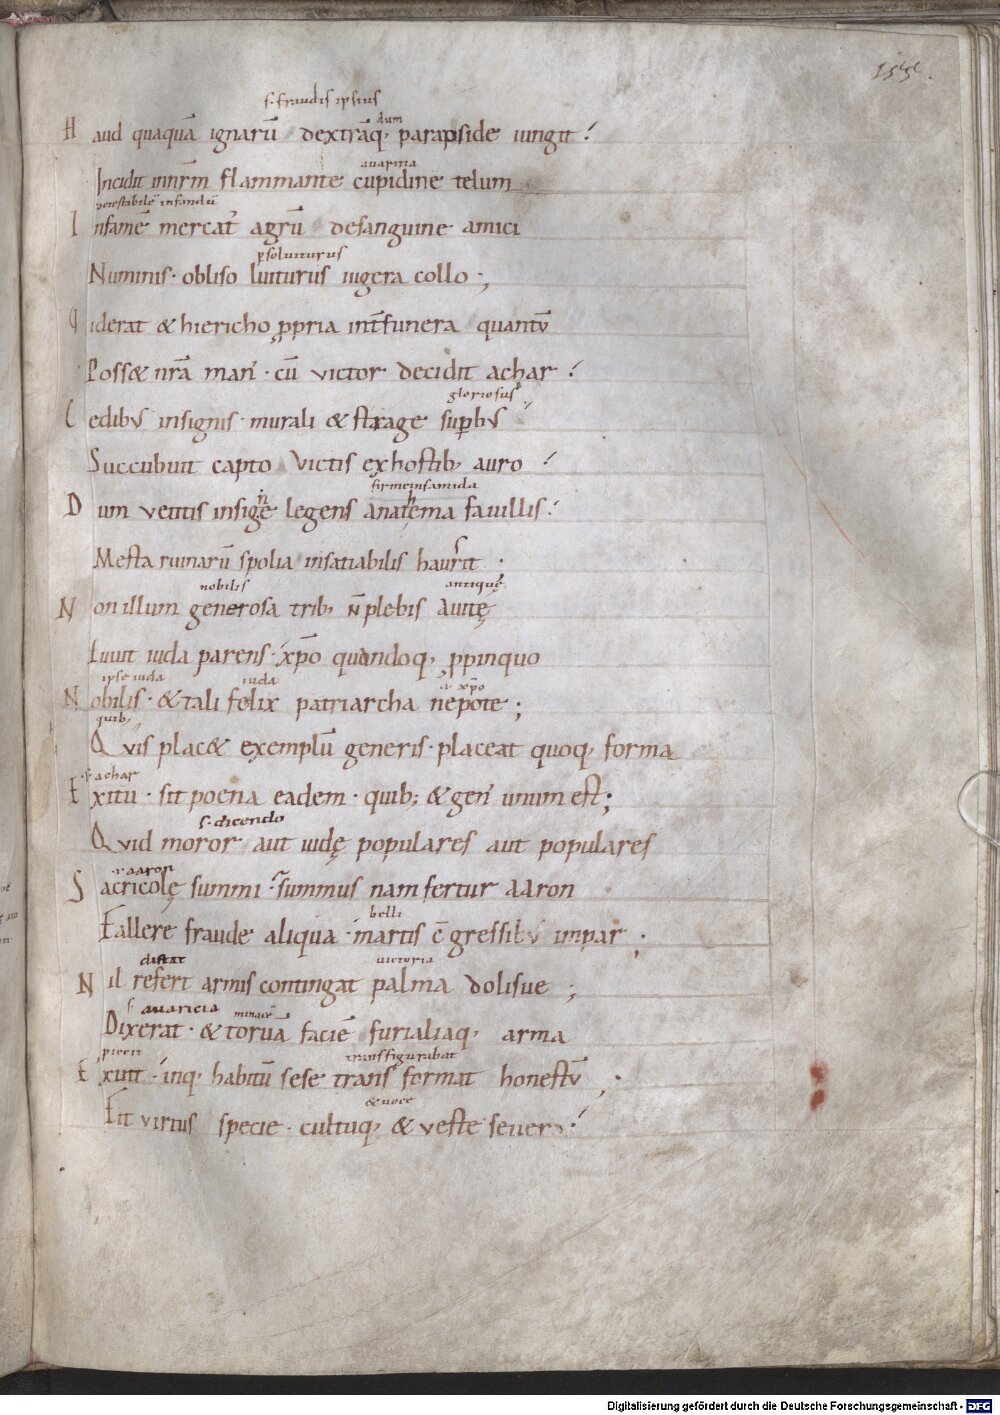 155.
s. fraudis ipsius
dum
H aud quaquā ignarū dextrāq; parapside iungit?
auaritia
Incidit in nr̄m flammante cupidine telum
detestabilē infandū
I nfamē mercat̄ agrū de sanguine amici
p̱soluiturus
Numinis · obliso luiturus iugera collo ;
V iderat & hiericho ꝓpria int̄ funera quantū
Poss& nr̄a man' · cū victor decidit achar ?
gloriosus
C edibus insignis · murali & strage sup̱bus
Succubuit capto victis ex hostib; auro ?
firmeinsamida
n̄
h
D um vetitis insigē legens anatema fauillis ?
Mesta ruinarū spolia insatiabilis haurit ·
nobilis antiquę
N on illum generosa trib; n̄ plebis auitę
Iuuit iuda parens · xp̄o quandoq; ꝓpinquo
ipse iuda iuda a xp̄o
N obilis · & tali felix patriarcha nepote ;
quib;
Quis plac& exemplū generis · placeat quoq; forma
s. achar
E xitu · sit poena eadem · quib; & gen' unum est ;
s. dicendo
Quid moror aut iudę populares aut populares
aaron
S acricolę summi · summus nam fertur aaron
belli
Fallere fraude aliqua · martis c̄gressibus impar ;
distat victoria
N il refert armis contingat palma dolisue ;
s. auaricia minacē
Dixerat · & toruā faciē furialiaq; arma
transfigurabat
E xuit · inq; habitū sese transformat honestū ;
& uoce
Fit virtus specie · cultuq; & veste seuera ?
Digitalisierung gefördert durch die Deutsche Forschungsgemeinschaft - DFG